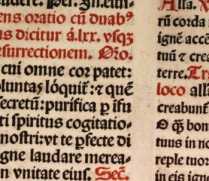 ens oratio cū duabꝰ
s dicitur à .lxx. vsqꝫ
esurrectionem. Oro.
cui omne cor patet:
oluntas lóquit: ⁊ que
ecretū: purifica ꝑ ifu
ti spiritus cogitatio-
nostri: vt ꝑfecte di
gne laudare merea-
n vnitate eius. Sec̄.
Alla. V
rū corda
igné accē
tuū ⁊ crea
terre. Tr
loco all
creabun
O q̄ bon
tuus in no
reple tuor
in eis igne